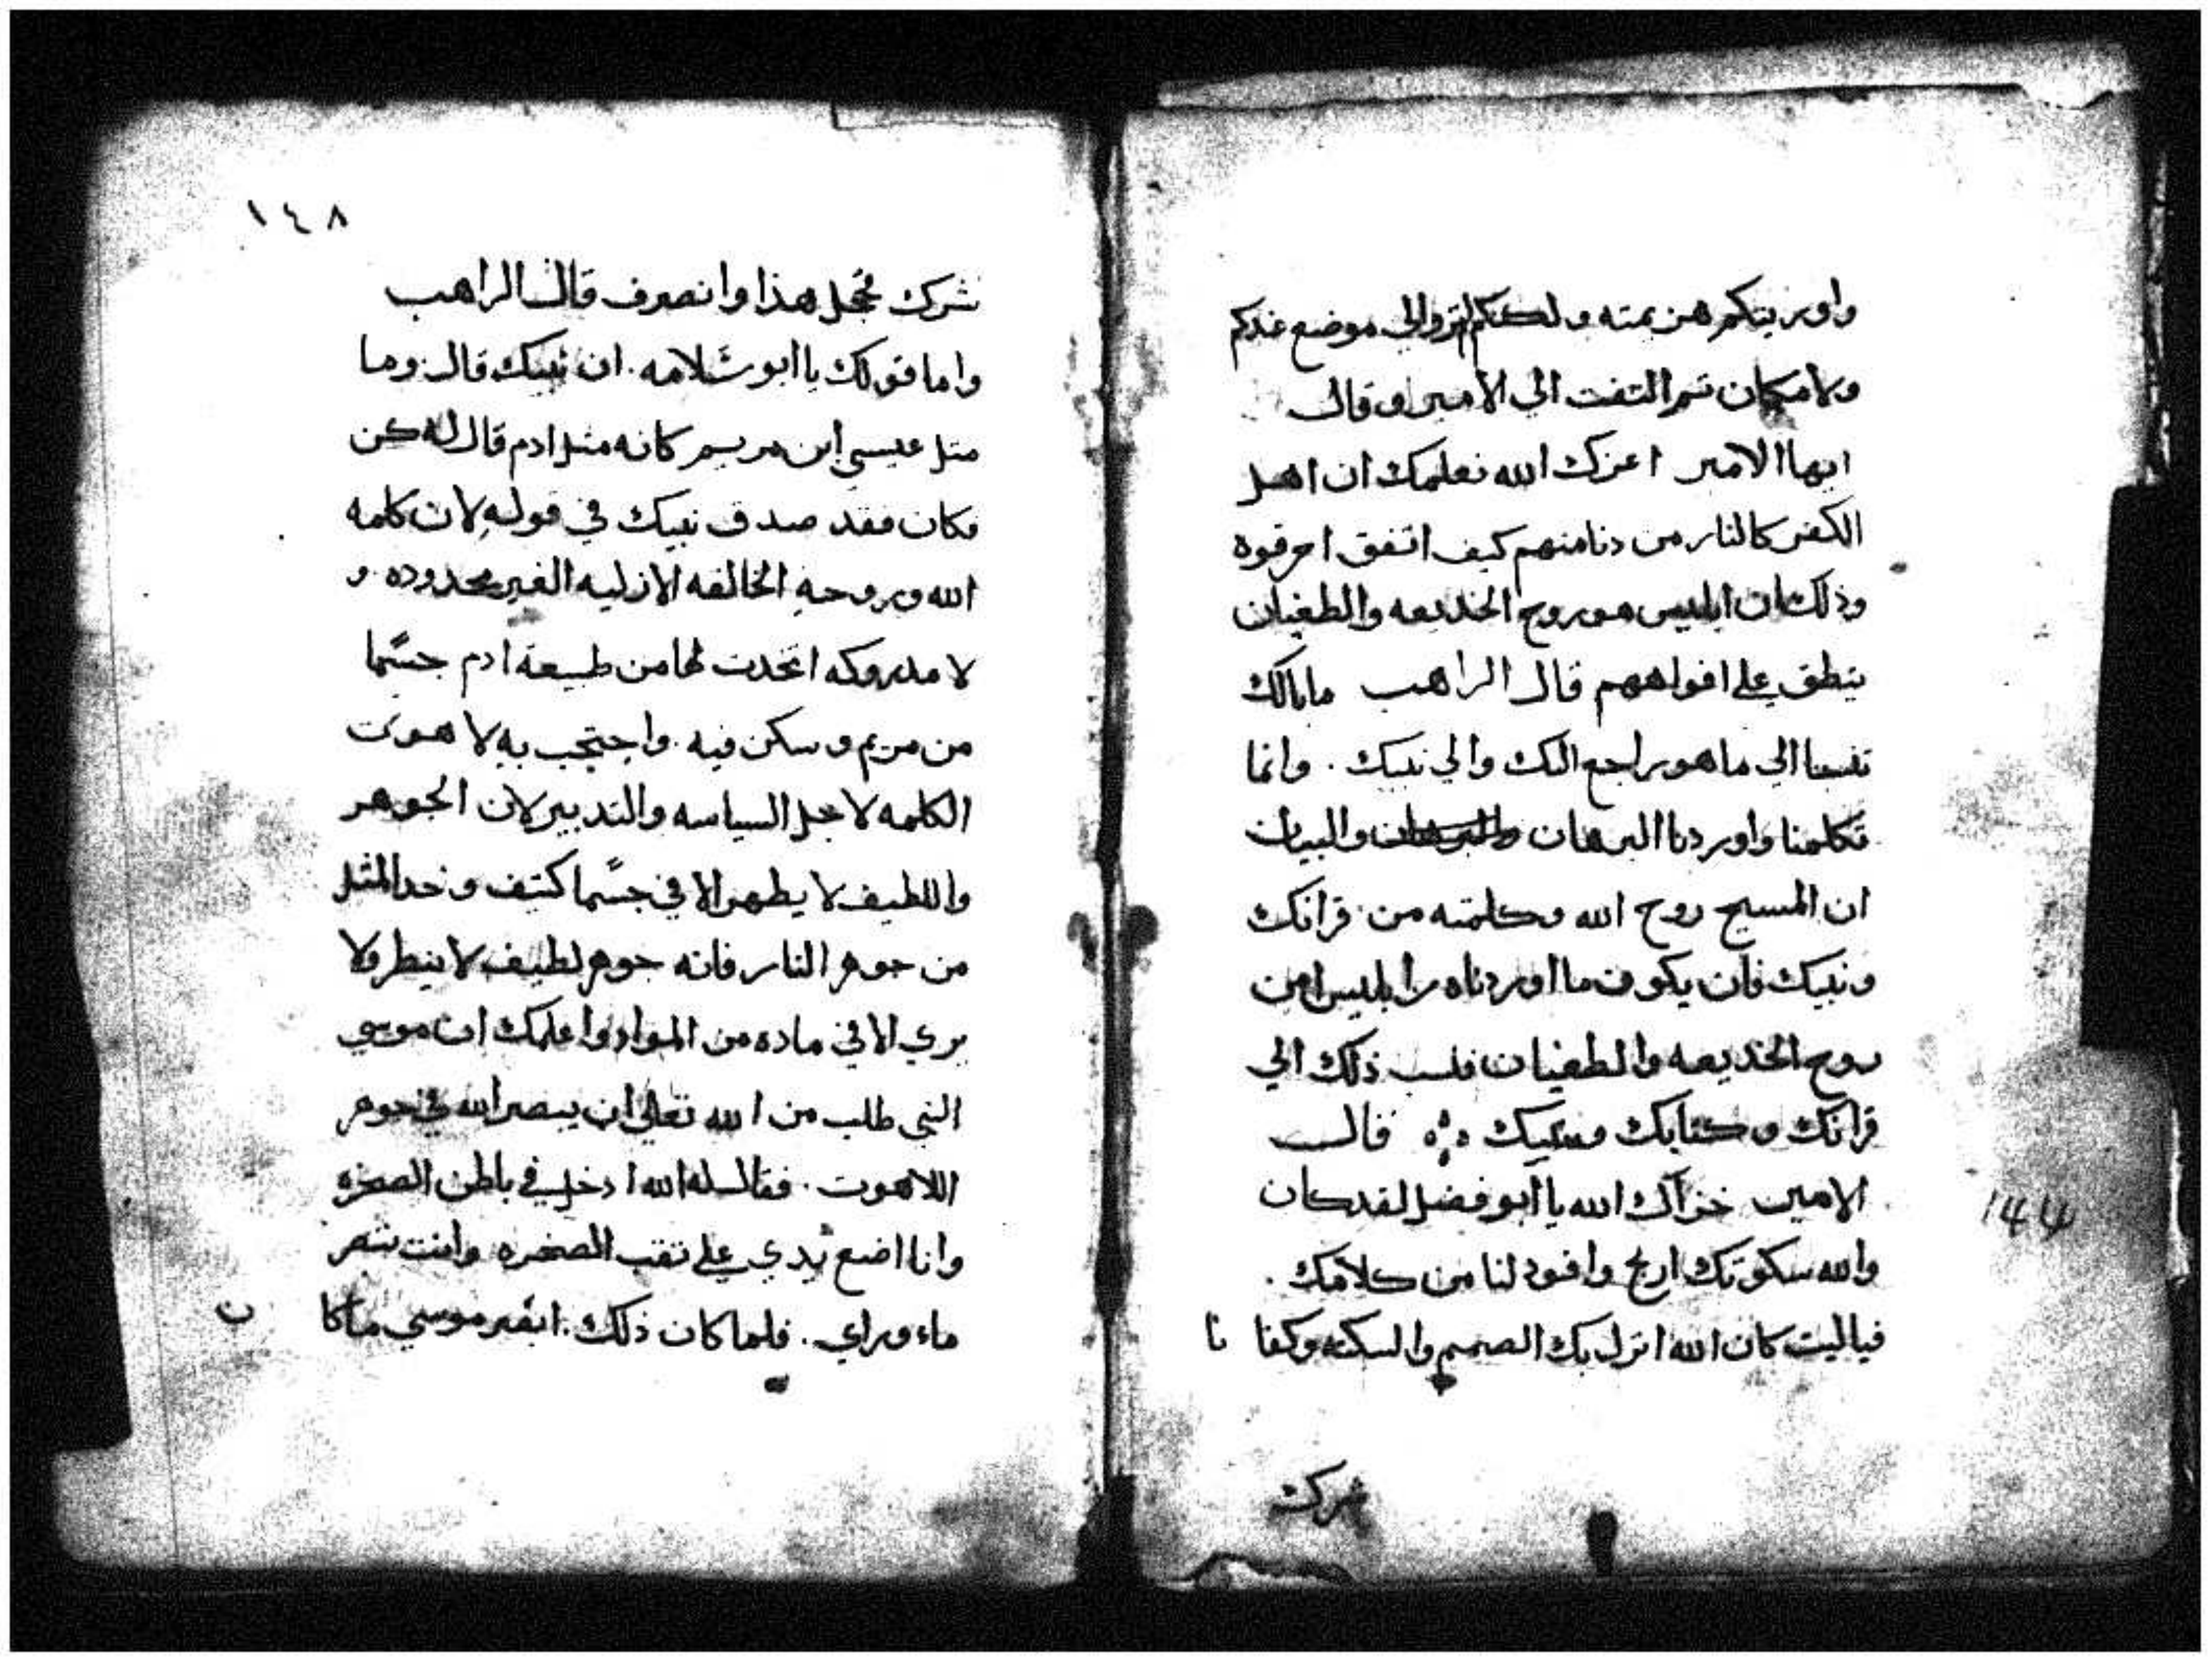 واوريتكم هزيمته ولكنكم لتزوالي موضع عندكم
ولا مكان تم التفت الي الامير وقال
ايها الامير اعزك الله نعلمك ان اهل
الكفر كالنار من دنا منهم كيف اتفق احرقوه
وذلك ان ابليس هو روح الخديعه والطغيان
ينطق علي افواههم قال الراهب ما بالك
تنسبنا الي ما هو راجع اليك والي نبيك . وانما
تكلمنا واوردنا البرهان والبيان
ان المسيح روح الله وكلمته من قرانك
ونبيك فان يكون ما اوردناه من
روح الخديعه والطغيان فنسب ذلك الي
قرانك وكتابك ونبيك قال
الامير خزاك الله يا ابو فضل لقد كان
والله سكوتك اربح وافود لنا من كلامك .
فياليت كان الله انزل بك الصمم والسكته وكفانا
شرك
144
١٤٨
شرك فحل هذا وانصرف قال الراهب
واما قولك يا ابو سلامه . ان نبيك قال وما
متل عيسي ابن مريم كانه متل ادم قال له كن
فكان فقد صدق نبيك في قوله لان كلمه
الله وروحه الخالقه الازليه الغير محدوده و
لا مدروكه اتخدت لها من طبيعة ادم جسما
من مريم وسكن فيه . واحتجب به لاهوت
الكلمه لاجل السياسه والتدبير لان الجوهر
واللطيف لا يظهر الا في جسما كتيف وخد المثل
من جوهر النار فانه جوهر لطيف لا ينظر ولا
يري الا في ماده من المواد واعلمك ان موسي
النبي طلب من الله تعالي ان يبصر الله في جوهر
اللاهوت . فقال له الله ادخل في باطن الصخره
وانا اضع يدي علي تقب الصخره وانت تبصر
ما وراي . فلما كان ذلك . ابصر موسي ما كان